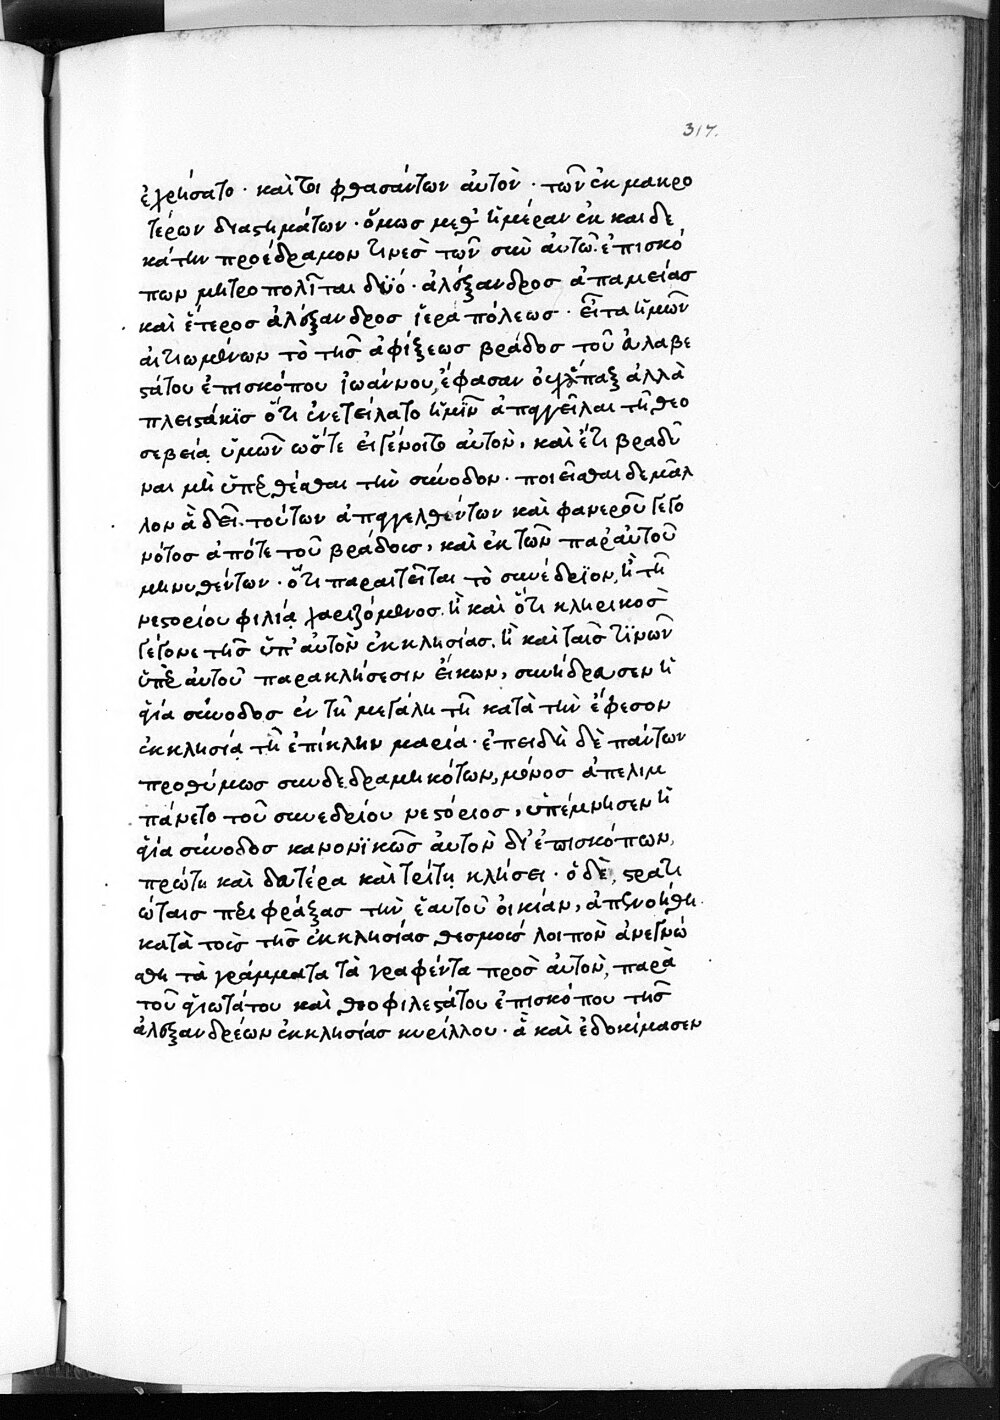 317.
ἐχρήσατο · καίτοι φθασάντων αὐτὸν · τῶν ἐκ μακρο
τέρων διαστημάτων · ὅμως μεθ' ἡμέραν ἑκ καιδε
κάτην προέδραμον τινὲς τῶν σὺν αὐτῶ· ἐπισκό
πων μητροπολῖται δϋό · ἀλέξανδρος ἀπαμείας
καὶ ἕτερος ἀλέξανδρος ἱεραπόλεως · εἶτα ἡμῶν
αἰτιωμένων τὸ τῆς ἀφίξεως βράδος τοῦ εὐλαβε
στάτου ἐπισκόπου ἰωάννου, ἔφασαν οὐχ ἅπαξ ἀλλὰ
πλειστάκϊς ὅτι ἐνετείλατο ἡμῖν ἀπαγγεῖλαι τῆ θεο
σεβεία ὑμῶν ὥστε εἰ γένοιτο αὐτὸν, καὶ ἔτι βραδῦ
ναι μὴ ὑπερθέσθαι τὴν σύνοδον · ποιεῖσθαι δὲ μᾶλ
λον ἃ δεῖ· τούτων ἀπαγγελθέντων καὶ φανεροῦ γεγο
νότος ἀπότε τοῦ βράδους, καὶ ἐκ τῶν παρ' αὐτοῦ
μηνυθέντων · ὅτι παραιτεῖται τὸ συνέδρϊον, ἢ τῆ
νεστορίου φιλία χαριζόμενος. ἢ καὶ ὅτι κληρικὸς
γέγονε τῆς ὑπ' αὐτὸν ἐκκλησίας. ἢ καὶ ταῖς τϊνῶν
ὑπὲρ αὐτοῦ παρακλήσεσιν εἴκων, συνήδρασεν ἡ
ἁγία σύνοδος ἐν τῆ μεγάλη τῆ κατὰ τὴν ἔφεσον
ἐκκλησία τῆ ἐπίκλην μαρία · ἐπειδὴ δὲ πάντων
προθύμως συνδεδραμηκότων, μόνος ἀπελιμ
πάνετο τοῦ συνεδρίου νεστόριος, ὑπέμνησεν ἡ
ἁγία σύνοδος κανονϊκῶς αὐτὸν δι' ἐπισκόπων,
πρώτη καὶ δευτέρα καὶ τρίτη κλήσει · ὁ δὲ, στρατι
ώταις περιφράξας τὴν ἑαυτοῦ οἰκίαν, ἀπενοήθη
κατὰ τοὺς τῆς ἐκκλησίας θεσμοὺς λοιπὸν ἀνεγνώ
σθη τὰ γράμματα τὰ γραφέντα πρὸς αὐτὸν, παρὰ
τοῦ ἁγιωτάτου καὶ θεοφιλεστάτου ἐπισκόπου τῆς
ἀλεξανδρέων ἐκκλησίας κυρίλλου · ἃ καὶ ἐδοκίμασεν